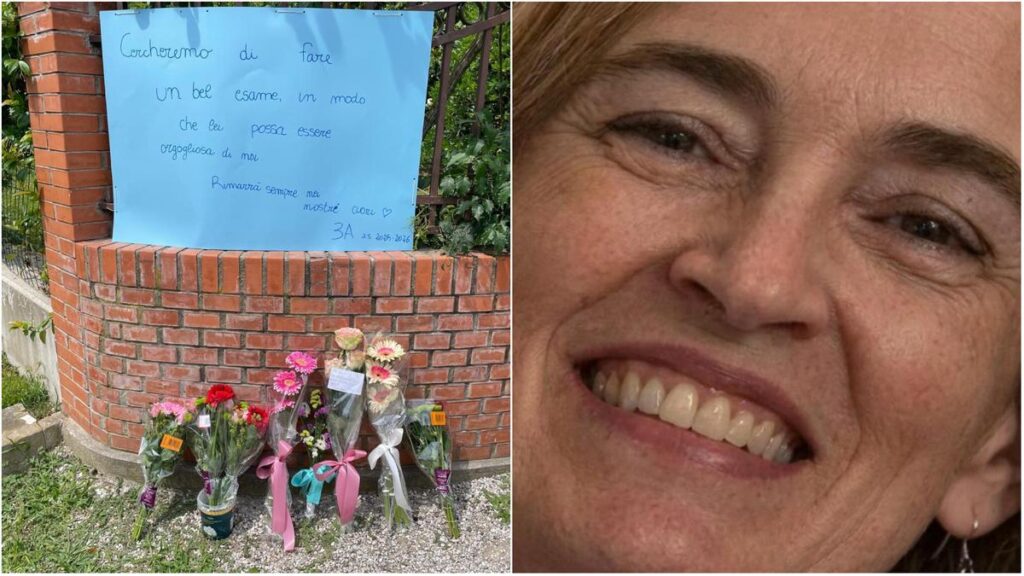 Cercheremo di fare
un bel esame, in modo
che lei possa essere
orgogliosa di noi
Rimarrà sempre nei
nostri cuori ♡
3A a.s. 2025-2026